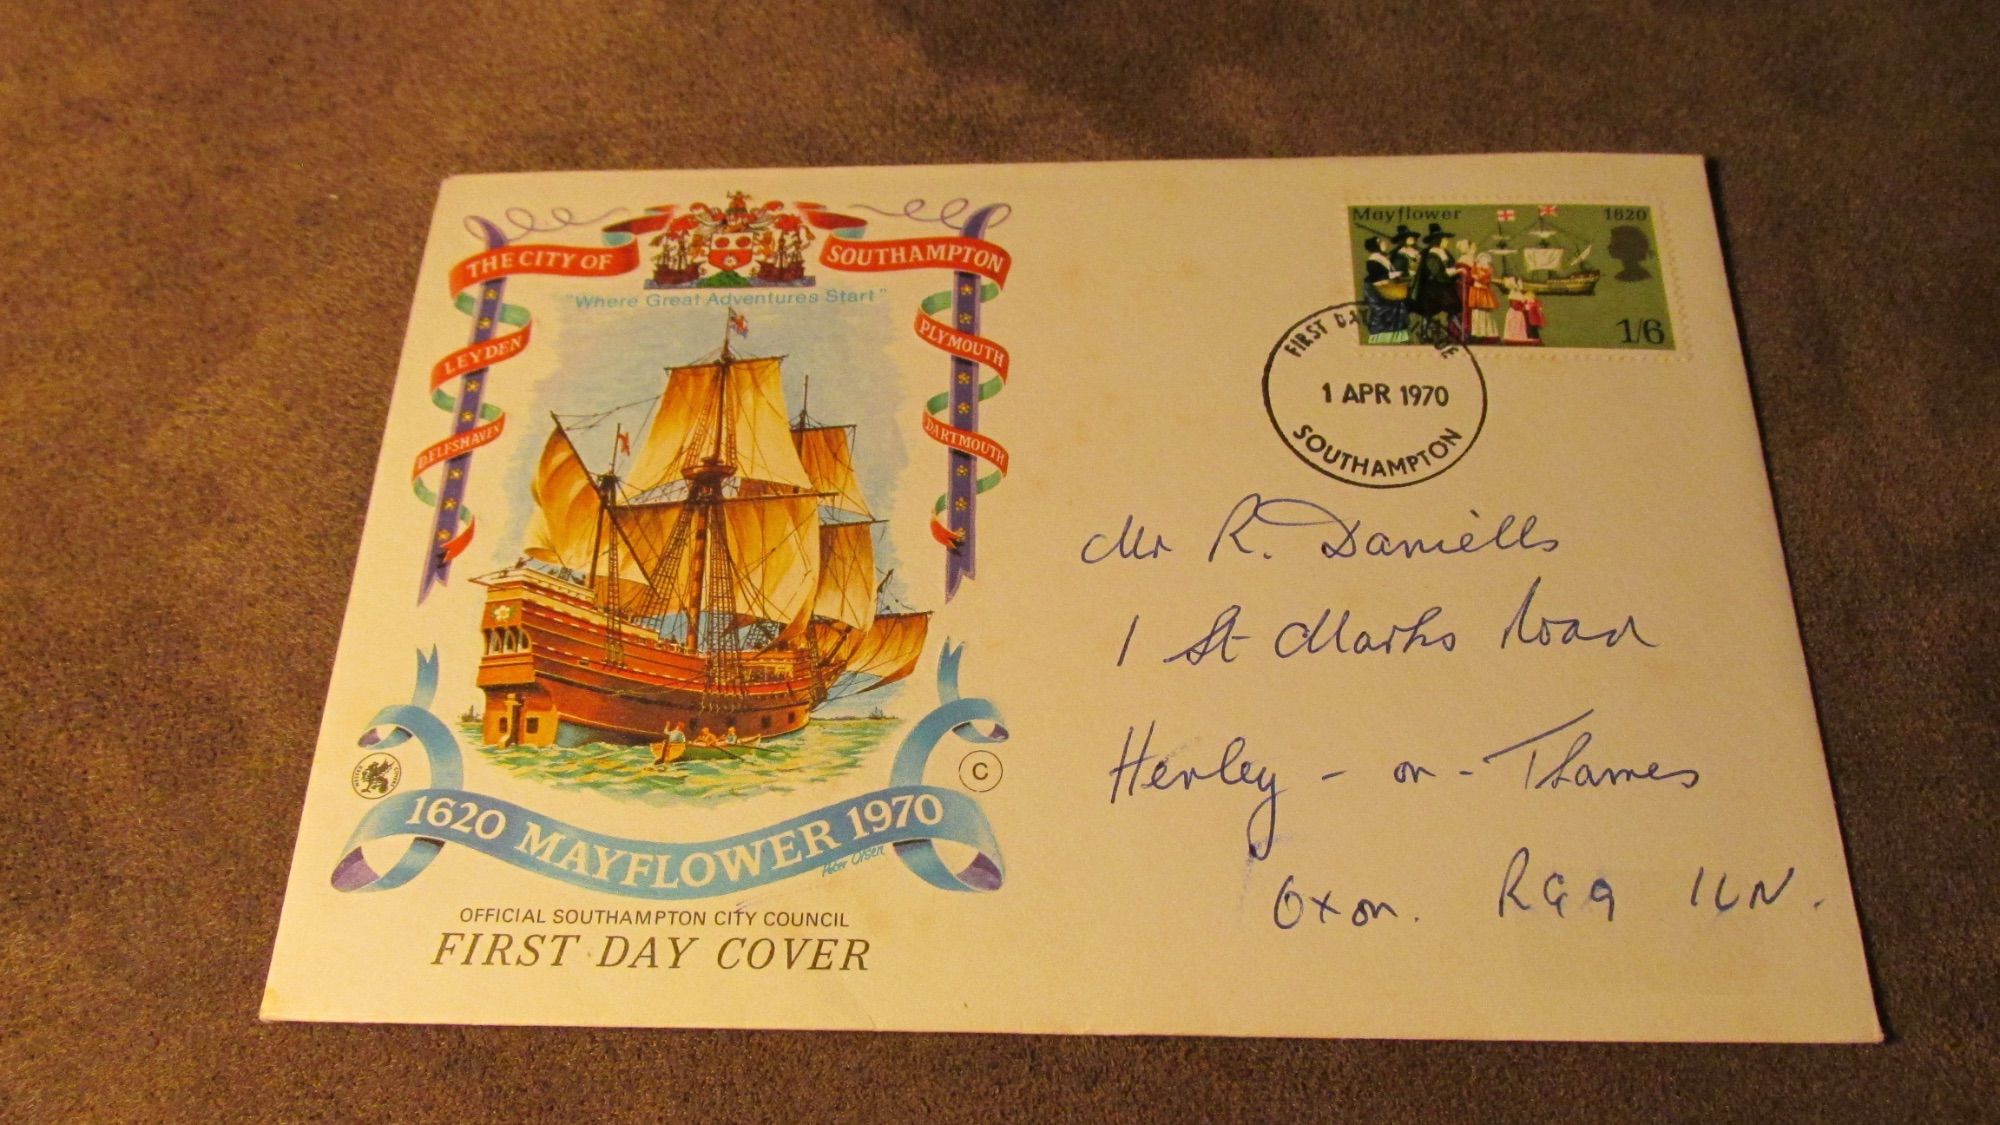 THE CITY OF SOUTHAMPTON
"Where Great Adventures Start"
LEYDEN
DELFSHAVEN
PLYMOUTH
DARTMOUTH
C
1620 MAYFLOWER 1970
Peter Olsen
OFFICIAL SOUTHAMPTON CITY COUNCIL
FIRST DAY COVER
Mayflower 1620
1/6
FIRST DAY OF ISSUE
1 APR 1970
SOUTHAMPTON
Mr R. Daniells
1 St Marks Road
Henley - on - Thames
Oxon. RG9 1LN.